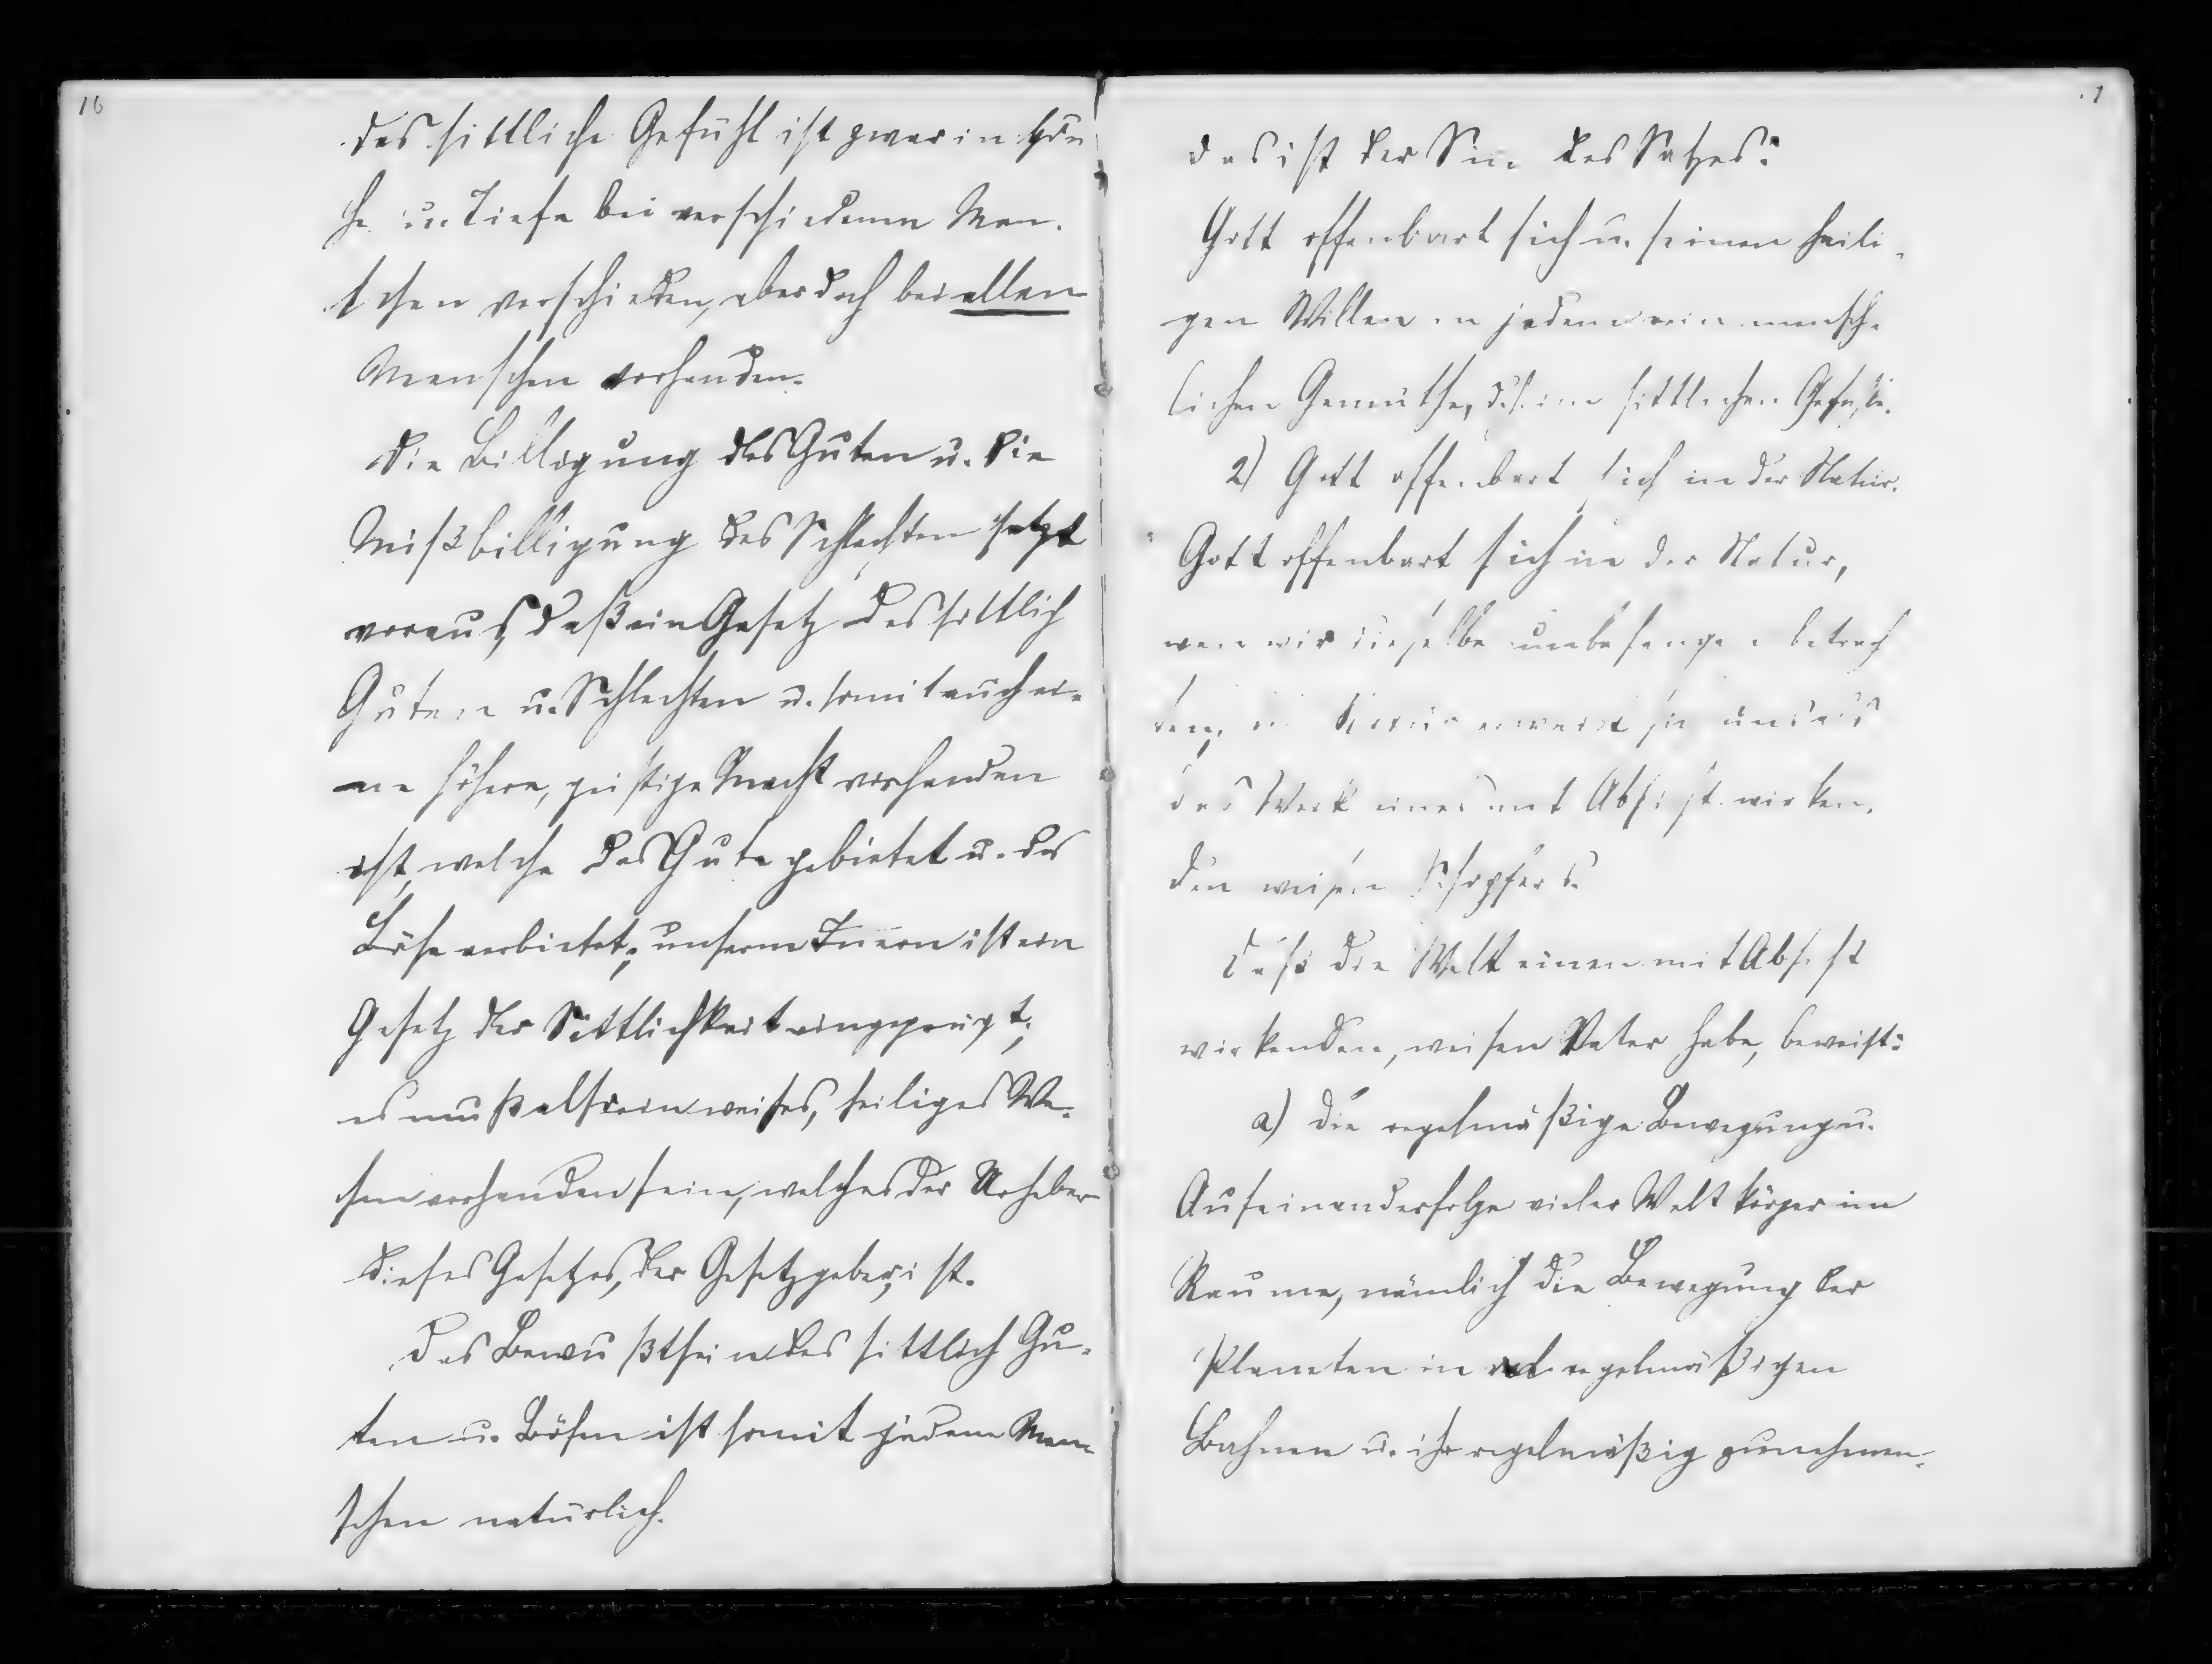 16
Das sittliche Gefühl ist zwar in Hö-
he u. Tiefe bei verschiedenen Men-
schen verschieden, aber doch bei allen
Menschen vorhanden.
Die Billigung des Guten u. die
Mißbilligung des Schlechten setzt
voraus, daß ein Gesetz des sittlich
Guten u. Schlechten u. somit auch ei-
ne höhere, geistige Macht vorhanden
ist, welche das Gute gebietet u. das
Böse verbietet; unserm Inern ist ein
Gesetz der Sittlichkeit eingeprägt;
es muß also ein weises, heiliges We-
sen vorhanden sein, welches der Urheber
dieses Gesetzes, der Gesetzgeber, ist.
Das Bewußtsein des sittlich Gu-
ten u. Bösen ist somit jedem Men-
schen natürlich.
Das ist der Sin des Satzes:
Gott offenbart sich u. seinen heili-
gen Willen in jedem rein mensch-
lichen Gemüthe, d.h. im sittlichen Gefühle.
2) Gott offenbart sich in der Natur.
Gott offenbart sich in der Natur,
wen wir dieselbe unbefangen betrach
ten; die Natur erweist sich uns als
das Werk eines mit Absicht wirken-
den weisen Schöpfers.
Daß die Welt einen mit Absicht
wirkenden, weisen Vater habe, beweist:
a) die regelmäßige Bewegung u.
Aufeinanderfolge vieler Weltkörper im
Raume, nämlich die Bewegung der
Planeten in regelmäßigen
Bahnen u. ihr regelmäßig zunehmen-